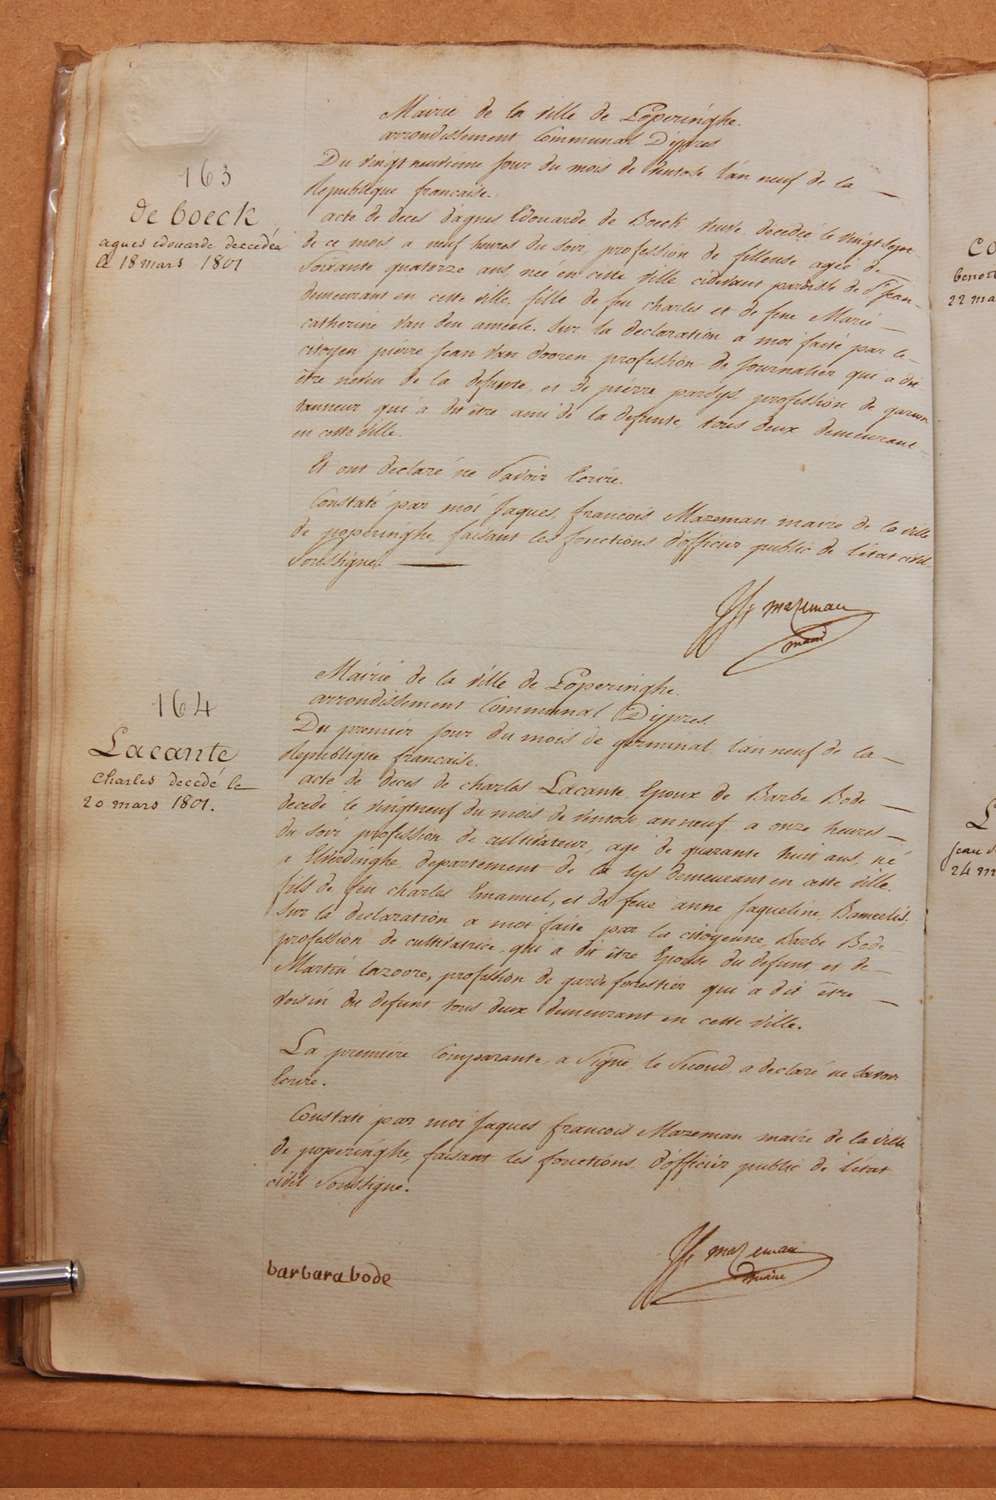 163
de boeck
agnes edouarde decedée
le 18 mars 1801
Mairie de la ville de Poperinghe.
arrondissement Communal D'ypres
Du vingt neuvieme jour du mois de Ventose l'an neuf de la
Republique francaise.
acte de deces d'agnes Edouarde de Boeck veuve decedée le vingt sept
de ce mois a neuf heures du soir, profession de fileuse agée de
Soixante quatorze ans, née en cette ville cidevant paroisse de St Jean
demeurant en cette ville, fille de feu charles et de feue Marie
catherine van den ameele. Sur la declaration a moi faite par le
citoyen pierre Jean van dooren profession de journalier qui a dit
être neveu de la defunte, et de pierre pardys profession de garcon
tanneur qui a dit être ami de la defunte, tous deux demeurant
en cette ville.
Et ont declaré ne Savoir Ecrire.
Constaté par moi Jaques francois Mazeman maire de la ville
de poperinghe, faisant les fonctions d'officier public de l'état civil
Soussigné.
JF mazeman
maire
164
Lacante
Charles decedé le
20 mars 1801.
Mairie de la ville de Poperinghe.
arrondissement Communal D'ypres.
Du premier jour du mois de germinal l'an neuf de la
Republique francaise.
acte de deces de charles Lacante Epoux de Barbe Bode
decedé le vingtneuf du mois de ventose an neuf a onze heures
du soir profession de cultivateur, agé de quarante huit ans, né
a Elverdinghe departement de la lys demeurant en cette ville
fils de feu charles Emanuel, et de feue anne Jaqueline Bameelis,
Sur la declaration a moi faite par la citoyenne Barbe Bode
profession de cultivatrice qui a dit être Epouse du defunt et de
Martin lazoore, profession de garde forestier qui a dit être
voisin du defunt tous deux demeurant en cette ville.
La premiere Comparante a Signé le Second a declaré ne Savoir
Ecrire.
Constaté par moi Jaques francois Mazeman maire de la ville
de poperinghe, faisant les fonctions d'officier public de l'état
civil Soussigné.
barbara bode
JF mazeman
maire
22 ma
L
jean d
24 m